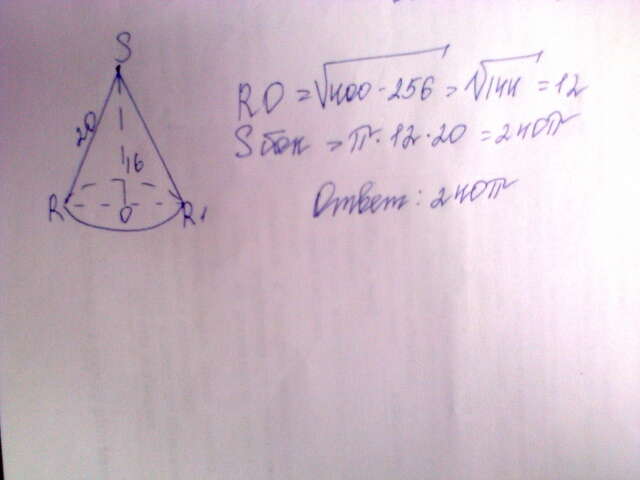 S
20
16
R
O
R₁
RO = √400 - 256 = √144 = 12
Sбок = π · 12 · 20 = 240π
Ответ: 240π